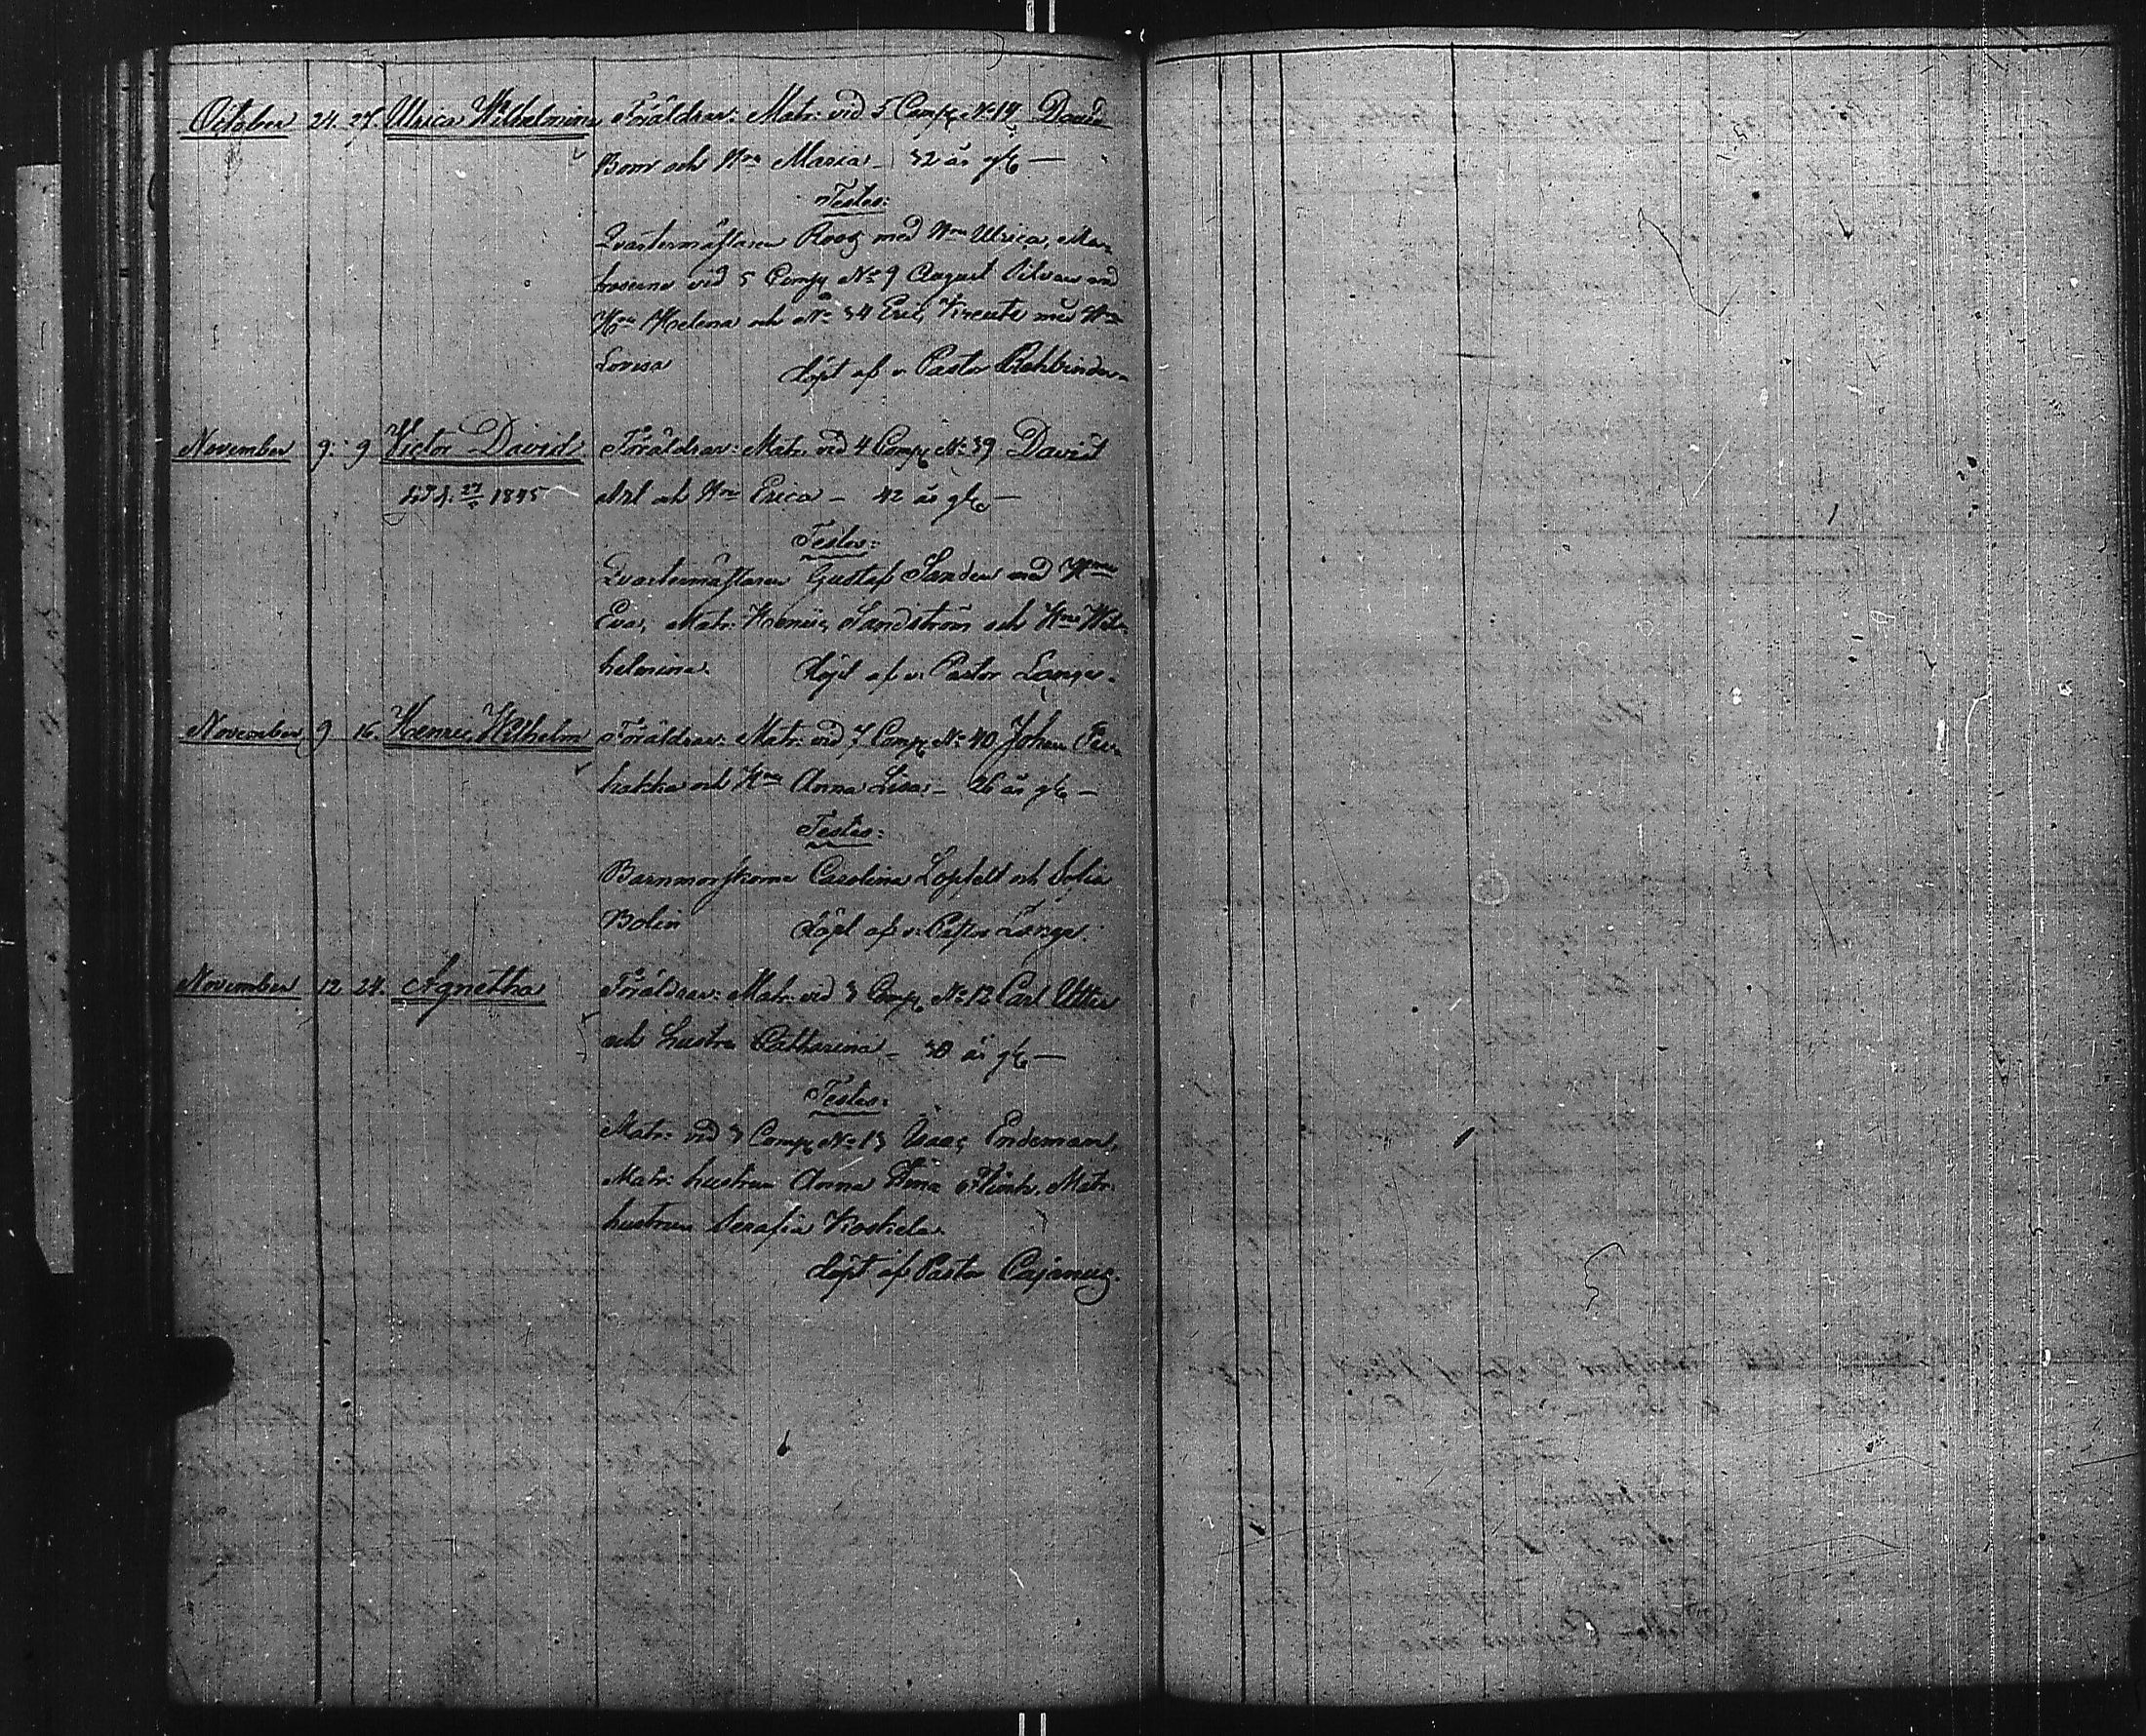 October 24. 27. Ulrica Wilhelmina Föräldrar: Matr: vid 5 Comp. No 14 David
Bom och Hru Maria - 32 år gl. —
Testes:
Qvartermästaren Roos med Hru Ulrica, Ma-
troserne vid 5 Comp No 9 August med
Hru Helena och No 34 Eric med Hru
Lovisa döpt af v. Pastor Rehbinder.
November 9. 9 Victor David Föräldrar: Matr. vid 4 Comp. No 39 David
död d. 1845 och Hru Erica - 42 år gl. —
Testes:
Qvartermästaren Gustaf Sanden med Hrun
Eva, Matr: Henric Sandström och Hru Wil-
helmina. döpt af v. Pastor Langer.
November 9 16. Henric Wilhelm Föräldrar: Matr. vid 7 Comp. No 40 Johan
och Hru Anna Lisa - 26 år gl. —
Testes:
Barnmorskorna Carolina och Sofia
Bolin döpt af v. Pastor Langer.
November 12 24. Agnetha Föräldrar: Matr. vid 3 Comp. No 12 Carl Utter
och hustru Catharina - 30 år gl. —
Testes:
Matr: vid 3 Comp. No 13 Isaac Endeman,
Matr: hustrun Anna Stina Flink, Matr.
hustrun Serafia Koskela.
döpt af Pastor Cajanus.